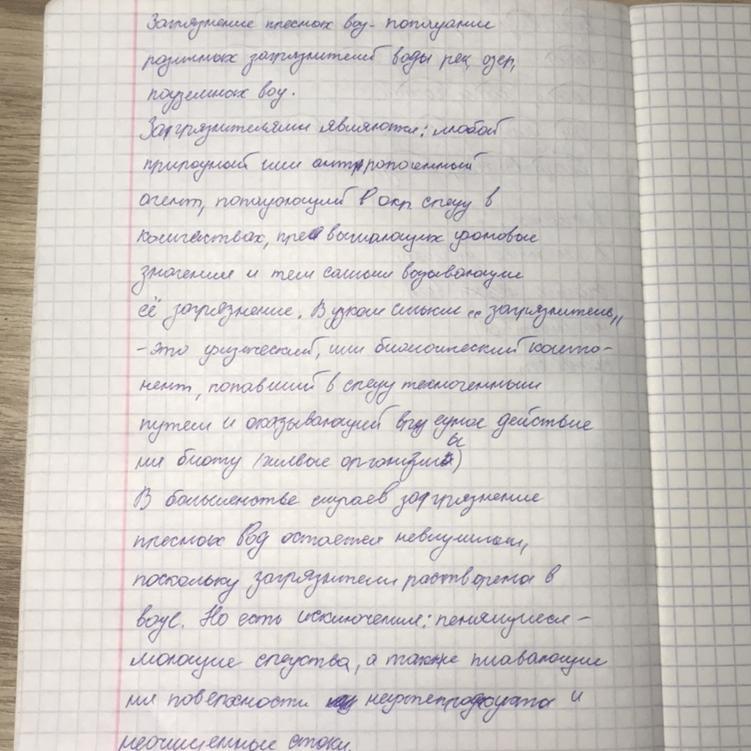 Загрязнение пресных вод - попадание
различных загрязнителей воды рек, озер,
подземных вод.
Загрязнителями являются: любой
природный или антропогенный
агент, попадающий в окр среду в
количествах, превышающих фоновые
значения и тем самым вызывающие
её загрязнение. В узком смысле „загрязнитель"
- это физический, или биологический компо-
нент, попавший в среду техногенным
путем и оказывающий действие
на биоту (живые организмы)
В большенстве случаев загрязнение
пресных вод остается невидимым,
поскольку загрязнители растворены в
воде. Но есть исключения: пенящиеся -
моющие средства, а также плавающие
на поверхности нефтепродукты и
неочищенные стоки.